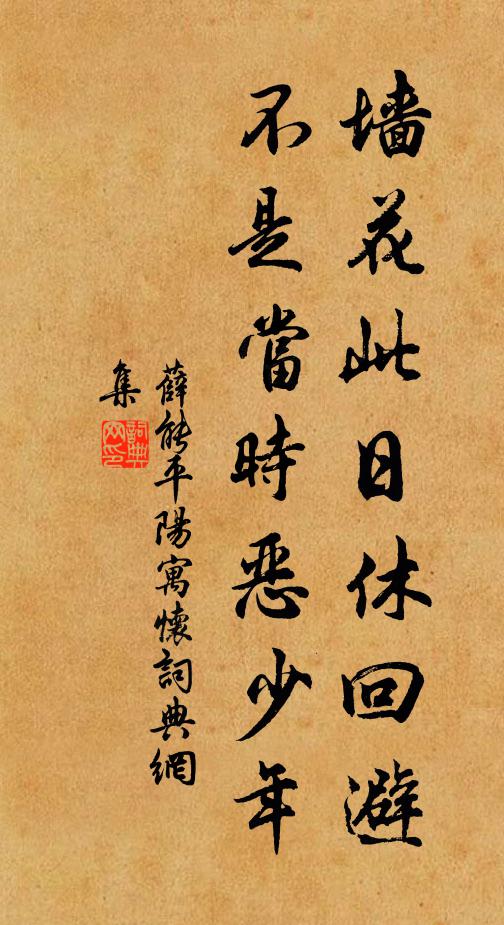 墙花此日休回避
不是當時惡少年
薛能平陽寓懷詞典網
集
詞典
网印